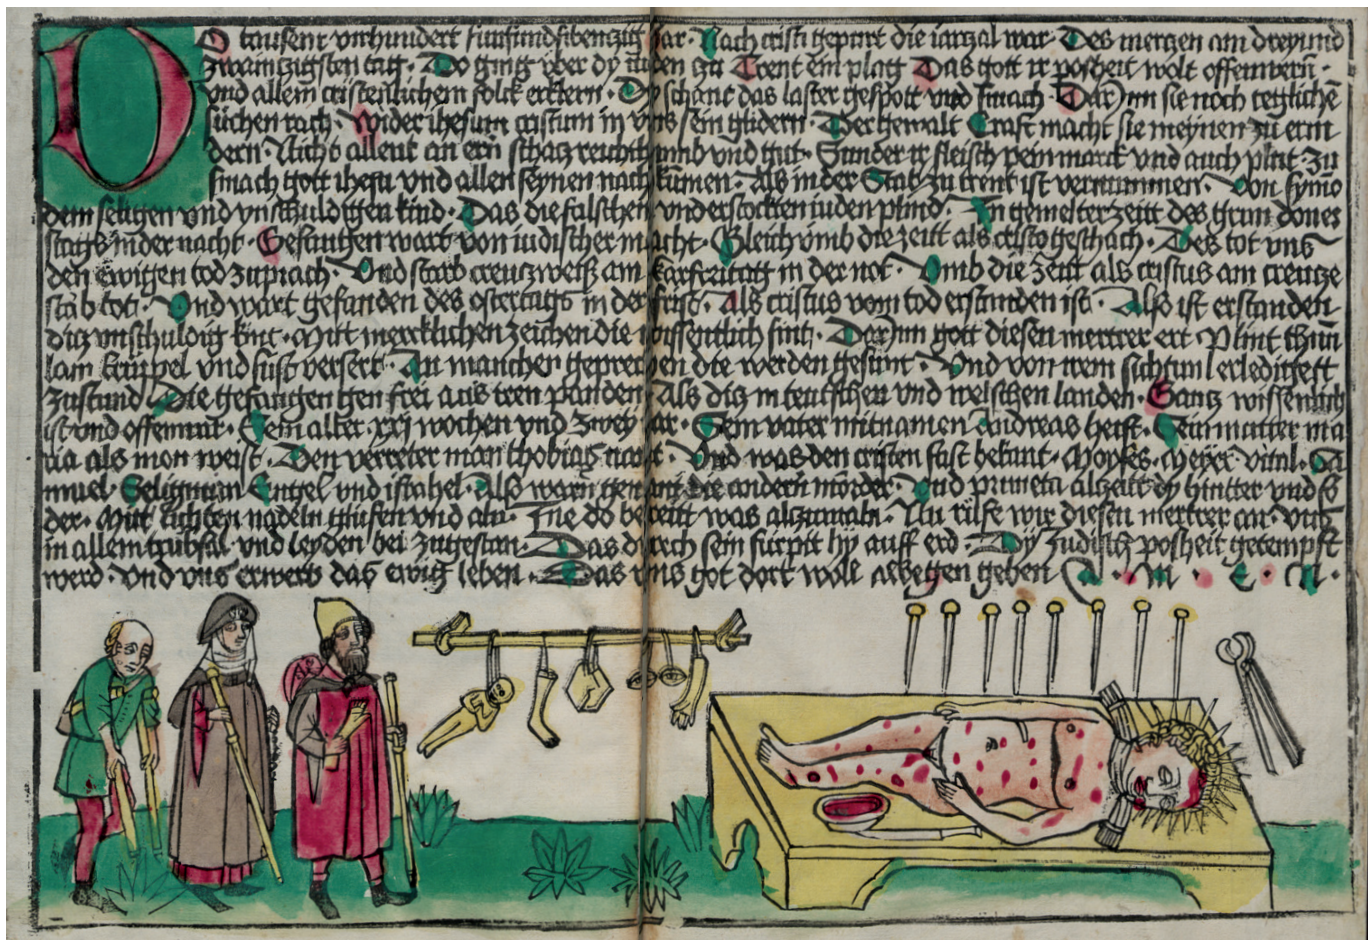 O tausent virhundert funfundsibenzig Jar · Nach cristi gepurt die iarzal war · Des merzen am dreyund
zwainzigsten tag · Do ging vber dy iuden zu Trent ein plag Das gott ir posheit wolt offenwern ·
vnd allem cristenlichem folck erklern · Dy schant das laster gespott vnd smach Dar vm sie noch teglichē
suchen rach · Wider ihesum cristum in vns sein glidern · Der gewalt Craft macht sie meynen zu erni
dern · Nicht allein an ern schatz reichthumb vnd gut · Sunder ir fleisch pein marck vnd auch plut · Zu
smach gott ihesu vnd allen seynen nachkumen · Als in der Stat zu trent ist vernummen · Von symō
dem seligen vnd vnschuldigen kind · Das die falschen vnd erstockten iuden plind · In gemelter zeitt des grun dones
stags in der nacht · Gefangen wart von iudischer macht · Gleich vmb die zeitt als cristo geschach · Des tot vns
den ewigen tod zuprach · Vnd starb creuczweiß am karfreitag in der not · Vmb die zeit als cristus am creutze
starb tot · Vnd wart gefunden des ostertags in der frist · Als cristus vom tod erstanden ist · Also ist erstanden
diz vnschuldig kint · Mitt mercklichen zeichen die wissentlich sint · Darvm gott diesen mertrer ert · Plint thun
lam krüppel vnd sust versert · An manchen geprechen die werden gesunt · Vnd von irem sichtum erlediget
zustund Die gefangen gen frei aus iren panden Als diz in teutschen vnd welschen landen · Gantz wissenlich
ist vnd offennar · Sein alter xxj wochen vnd zwey iar · Sein vater mit namen Andreas heist · Sein mutter ma
ria als mon weist · Den verreter man thobias nant · Vnd was den cristen fast bekant · Moyses · Meyer vital · Sa
muel · Seligman Engel vnd israhel · Also warn genant die andern mörder · Vnd pruneta alzeit dy hinter vnd fö
der · Mitt lichten nadeln glufen vnd aln · Ine do bereitt was alzumaln · Nu rüfe wir diesen mertrer an · Vns
in allem trübsal vnd leyden bei zugestan · Das durch sein fürpit hy auff erd · Dy Judisch posheit getempft
werd · vnd vns erwerb das ewig leben · Das vns got dort woll allwegen geben A · M · E · N ·